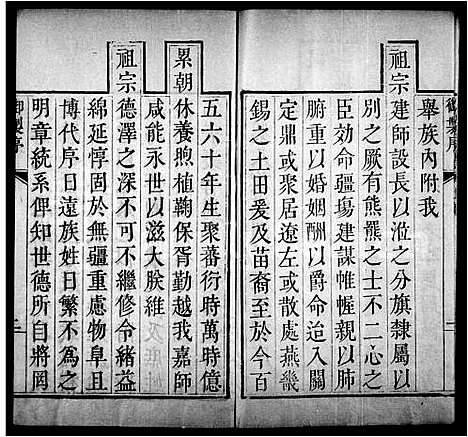 舉族內附我
祖宗建師設長以涖之分旗隸屬以
別之厥有熊羆之士不二心之
臣効命疆場建謀帷幄親以肺
腑重以婚姻酬以爵命迨入關
定鼎或聚居遼左或散處燕畿
錫之土田爰及苗裔至於今百
五六十年生聚蕃衍時萬時億
累朝休養煦植鞠保胥勤越我嘉師
咸能永世以滋大朕維
祖宗德澤之深不可不繼修令緒益
綿延惇固於無疆重慮物阜且
博代序日遠族姓日繁不為之
明章統系俾知世德所自將罔
御製序
御製序
二